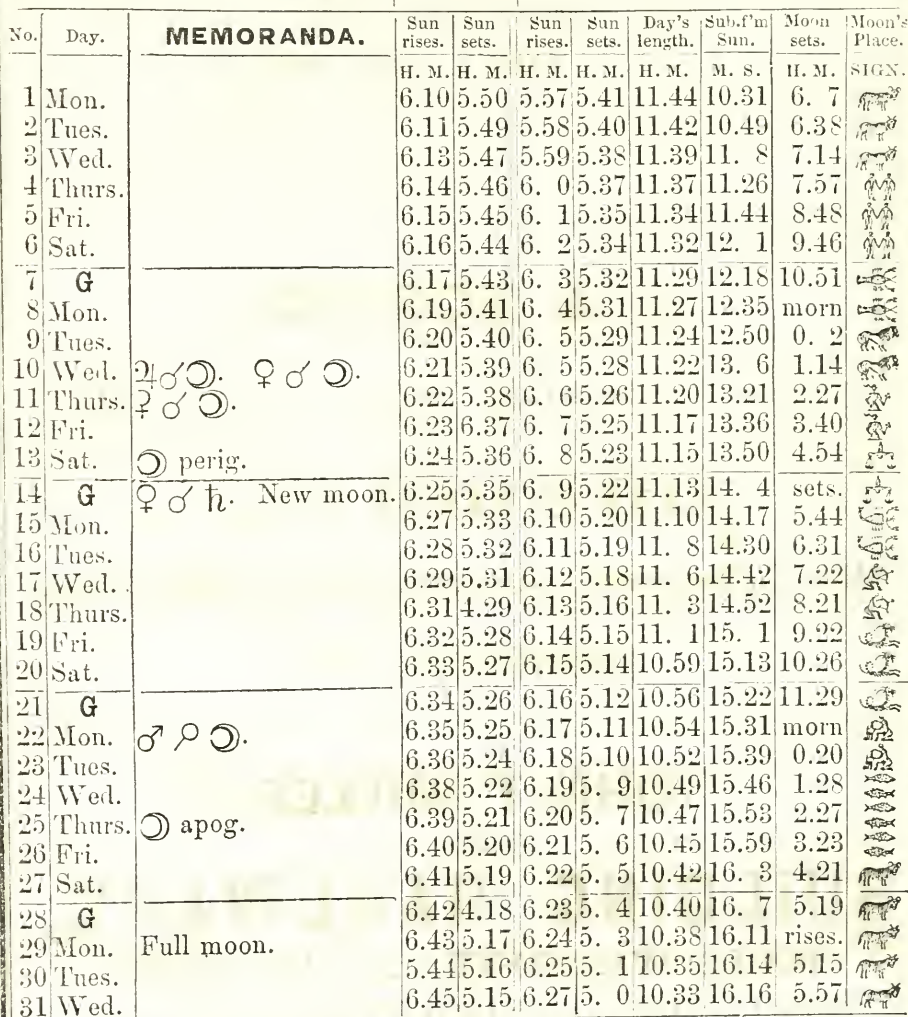 No. Day. MEMORANDA. Sun rises. Sun sets. Sun rises. Sun sets. Day's length. Sub.f'm Sun. Moon sets. Moon's Place.
H. M. H. M. H. M. H. M. H. M. M. S. H. M. SIGN.
1 Mon. 6.10 5.50 5.57 5.41 11.44 10.31 6. 7
2 Tues. 6.11 5.49 5.58 5.40 11.42 10.49 6.38
3 Wed. 6.13 5.47 5.59 5.38 11.39 11. 8 7.14
4 Thurs. 6.14 5.46 6. 0 5.37 11.37 11.26 7.57
5 Fri. 6.15 5.45 6. 1 5.35 11.34 11.44 8.48
6 Sat. 6.16 5.44 6. 2 5.34 11.32 12. 1 9.46
7 G 6.17 5.43 6. 3 5.32 11.29 12.18 10.51
8 Mon. 6.19 5.41 6. 4 5.31 11.27 12.35 morn
9 Tues. 6.20 5.40 6. 5 5.29 11.24 12.50 0. 2
10 Wed. ♃☌☽. ♀☌☽. 6.21 5.39 6. 5 5.28 11.22 13. 6 1.14
11 Thurs. ☿☌☽. 6.22 5.38 6. 6 5.26 11.20 13.21 2.27
12 Fri. 6.23 6.37 6. 7 5.25 11.17 13.36 3.40
13 Sat. ☽ perig. 6.24 5.36 6. 8 5.23 11.15 13.50 4.54
14 G ♀☌♄. New moon. 6.25 5.35 6. 9 5.22 11.13 14. 4 sets.
15 Mon. 6.27 5.33 6.10 5.20 11.10 14.17 5.44
16 Tues. 6.28 5.32 6.11 5.19 11. 8 14.30 6.31
17 Wed. 6.29 5.31 6.12 5.18 11. 6 14.42 7.22
18 Thurs. 6.31 4.29 6.13 5.16 11. 3 14.52 8.21
19 Fri. 6.32 5.28 6.14 5.15 11. 1 15. 1 9.22
20 Sat. 6.33 5.27 6.15 5.14 10.59 15.13 10.26
21 G 6.34 5.26 6.16 5.12 10.56 15.22 11.29
22 Mon. ♂☍☽. 6.35 5.25 6.17 5.11 10.54 15.31 morn
23 Tues. 6.36 5.24 6.18 5.10 10.52 15.39 0.20
24 Wed. 6.38 5.22 6.19 5. 9 10.49 15.46 1.28
25 Thurs. ☽ apog. 6.39 5.21 6.20 5. 7 10.47 15.53 2.27
26 Fri. 6.40 5.20 6.21 5. 6 10.45 15.59 3.23
27 Sat. 6.41 5.19 6.22 5. 5 10.42 16. 3 4.21
28 G 6.42 4.18 6.23 5. 4 10.40 16. 7 5.19
29 Mon. Full moon. 6.43 5.17 6.24 5. 3 10.38 16.11 rises.
30 Tues. 5.44 5.16 6.25 5. 1 10.35 16.14 5.15
31 Wed. 6.45 5.15 6.27 5. 0 10.33 16.16 5.57